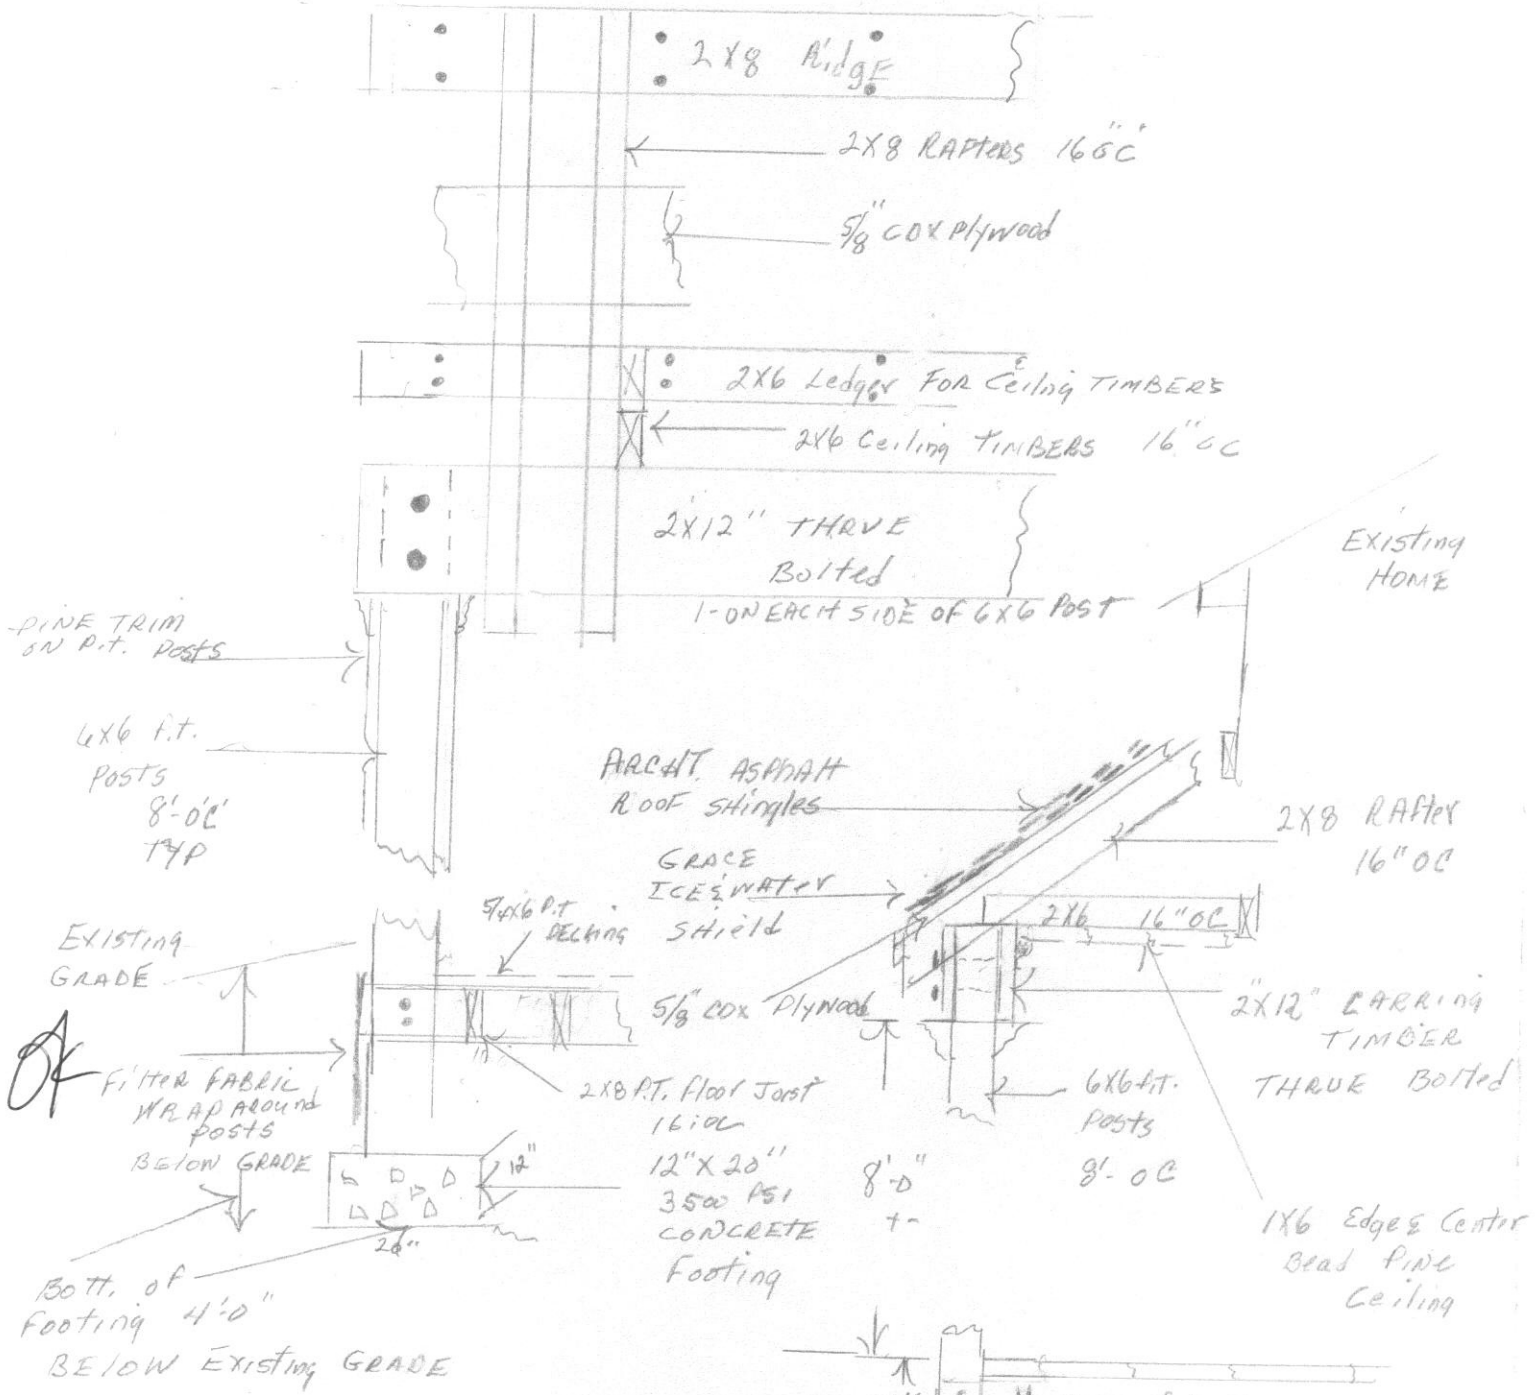 2X8 RidgE
2X8 RAFTERS 16"OC
5/8" CDX Plywood
2X6 Ledger FOR Ceiling TIMBERS
2X6 Ceiling TIMBERS 16" OC
2X12" THRUE
Bolted
1-ON EACH SIDE OF 6X6 POST
Existing
HOME
PINE TRIM
ON P.T. POSTS
6X6 P.T.
POSTS
8'-OC
TYP
ARCHT. ASPHAlT
ROOF SHingles
GRACE
ICE & WATER
SHield
2X8 RAfter
16" OC
2X6 16" OC
Existing
GRADE
5/4X6 P.T
DECKing
5/8" CDX Plywood
2"X12" CARRing
TIMBER
THRUE Bolted
OK
FilTER FABRIC
WRAP AROUND
POSTS
BElOW GRADE
2X8 P.T. Floor Joist
16"OC
12"
12" X 20"
3500 PSI
CONCRETE
Footing
20"
8'-0"
+-
6X6 P.T.
Posts
8'- OC
1X6 Edge & Center
Bead Pine
Ceiling
Bott. of
Footing 4'-0"
BElOW Existing GRADE